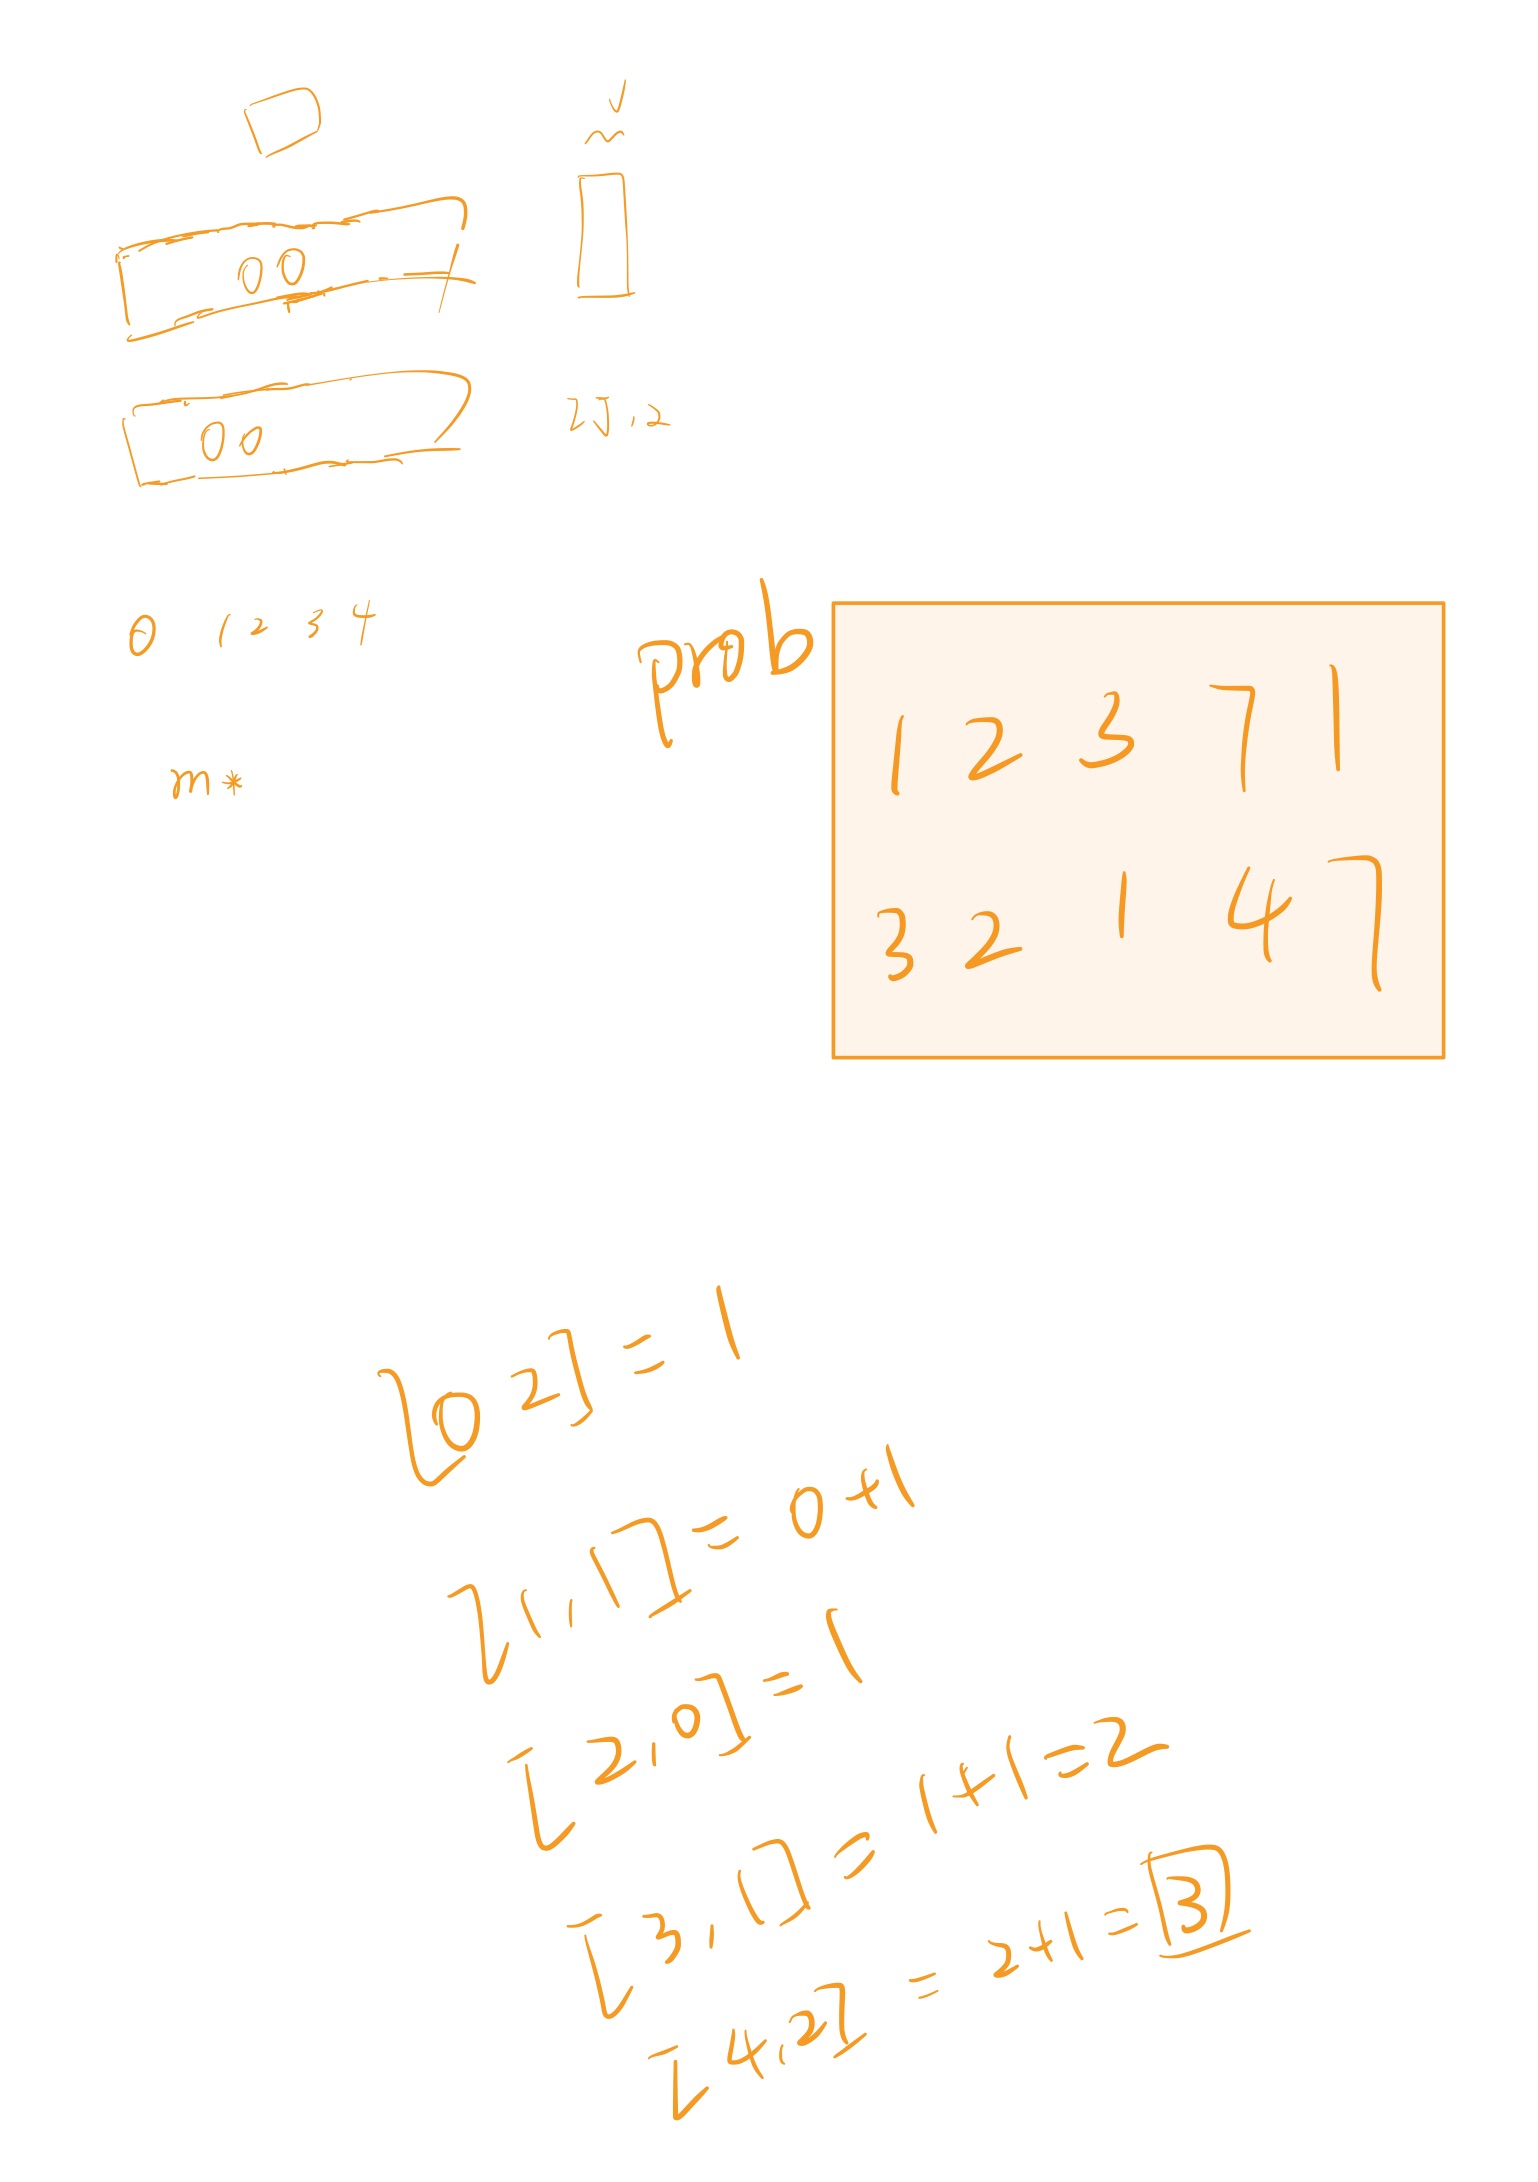 00
00
[].2
0 1 2 3 4
prob
1 2 3 7 1
3 2 1 4 7
m*
[0 2] = 1
[1,1] = 0+1
[2,0] = 1
[3,1] = 1+1=2
[4,2] = 2+1=3